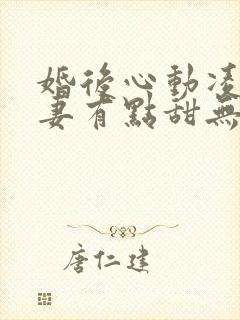 婚後心動凌
妻有點甜無
唐仁建